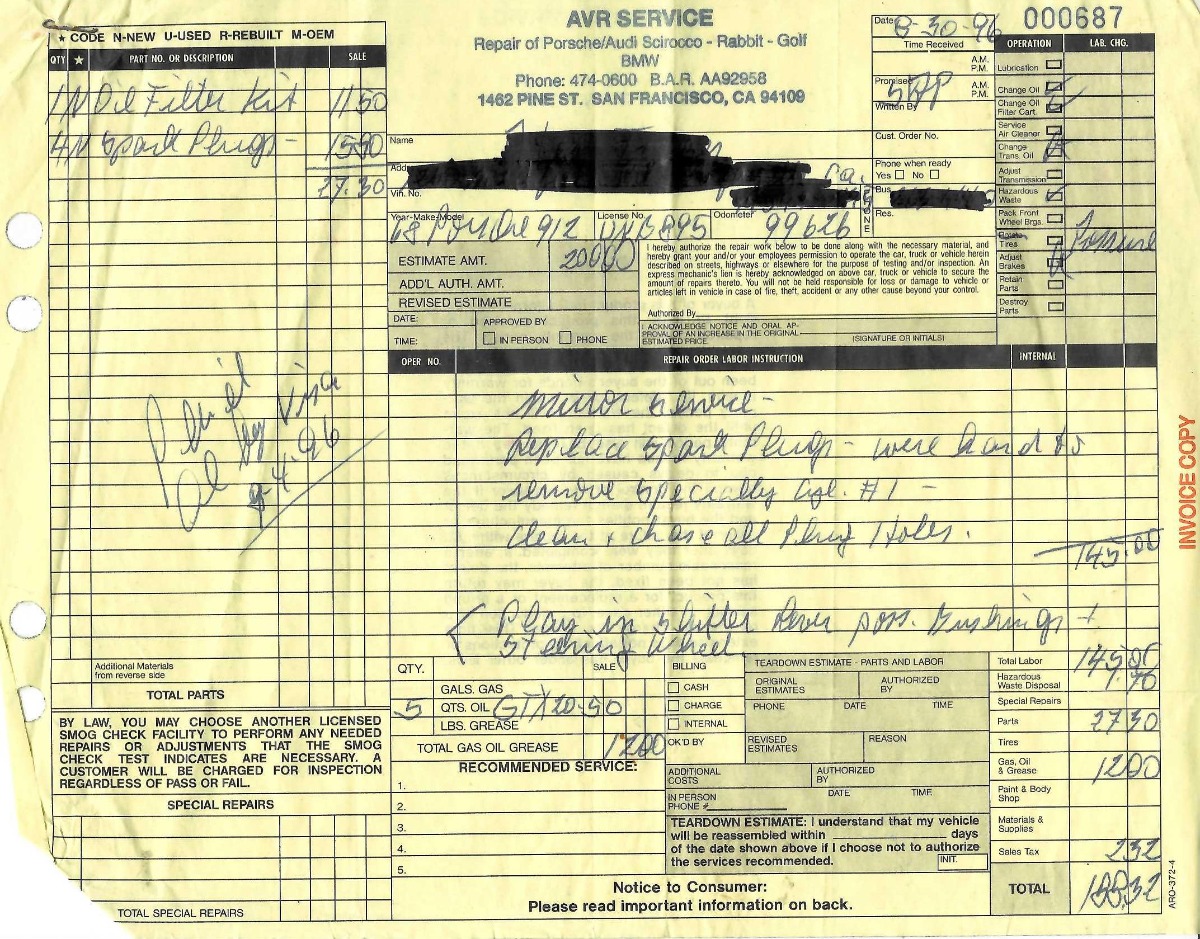 AVR SERVICE
Repair of Porsche/Audi Scirocco - Rabbit - Golf
BMW
Phone: 474-0600 B.A.R. AA92958
1462 PINE ST. SAN FRANCISCO, CA 94109
000687
Date 8-30-96
Time Received A.M. P.M.
Promised A.M. P.M.
Written By
Cust. Order No.
Phone when ready
Yes No
Bus.
Res.
PHONE
★ CODE N-NEW U-USED R-REBUILT M-OEM
QTY ★ PART NO. OR DESCRIPTION SALE
1 N Oil Filter Kit 11 50
4 N Spark Plugs - 15 80
27.30
Paid
by Visa
9-4-96
Additional Materials
from reverse side
TOTAL PARTS
BY LAW, YOU MAY CHOOSE ANOTHER LICENSED
SMOG CHECK FACILITY TO PERFORM ANY NEEDED
REPAIRS OR ADJUSTMENTS THAT THE SMOG
CHECK TEST INDICATES ARE NECESSARY. A
CUSTOMER WILL BE CHARGED FOR INSPECTION
REGARDLESS OF PASS OR FAIL.
SPECIAL REPAIRS
TOTAL SPECIAL REPAIRS
Name
Ca.
Vin. No.
Year-Make-Model 68 Porsche 912
License No.
Odometer 99626
ESTIMATE AMT. 200 00
ADD'L AUTH. AMT.
REVISED ESTIMATE
DATE:
TIME:
APPROVED BY
IN PERSON PHONE
I hereby authorize the repair work below to be done along with the necessary material, and
hereby grant you and/or your employees permission to operate the car, truck or vehicle herein
described on streets, highways or elsewhere for the purpose of testing and/or inspection. An
express mechanic's lien is hereby acknowledged on above car, truck or vehicle to secure the
amount of repairs thereto. You will not be held responsible for loss or damage to vehicle or
articles left in vehicle in case of fire, theft, accident or any other cause beyond your control.
Authorized By
I ACKNOWLEDGE NOTICE AND ORAL AP-
PROVAL OF AN INCREASE IN THE ORIGINAL
ESTIMATED PRICE.
(SIGNATURE OR INITIALS)
OPERATION LAB. CHG.
Lubrication
Change Oil
Change Oil
Filter Cart.
Service
Air Cleaner
Change
Trans. Oil
Adjust
Transmission
Hazardous
Waste
Pack Front
Wheel Brgs.
Rotate
Tires
Adjust
Brakes
Retain
Parts
Destroy
Parts
OPER NO. REPAIR ORDER LABOR INSTRUCTION INTERNAL
minor service -
replace spark Plugs - were hard to
remove specially cyl. #1 -
clean + chase all Plug Holes.
145.00
Play in shifter lever poss. Bushings +
Steering Wheel.
QTY. SALE
GALS. GAS
5 QTS. OIL GTX 20-50
LBS. GREASE
TOTAL GAS OIL GREASE 12 00
RECOMMENDED SERVICE:
1.
2.
3.
4.
5.
BILLING
CASH
CHARGE
INTERNAL
TEARDOWN ESTIMATE - PARTS AND LABOR
ORIGINAL
ESTIMATES
AUTHORIZED
BY
PHONE DATE TIME
OK'D BY
REVISED
ESTIMATES
REASON
ADDITIONAL
COSTS
AUTHORIZED
BY
IN PERSON
PHONE # DATE TIME
TEARDOWN ESTIMATE: I understand that my vehicle
will be reassembled within days
of the date shown above if I choose not to authorize
the services recommended. INIT.
Total Labor 145.00
Hazardous
Waste Disposal
Special Repairs
Parts 27 30
Tires
Gas, Oil
& Grease 12 00
Paint & Body
Shop
Materials &
Supplies
Sales Tax 2 32
TOTAL 188.32
Notice to Consumer:
Please read important information on back.
INVOICE COPY
ARO-372-4